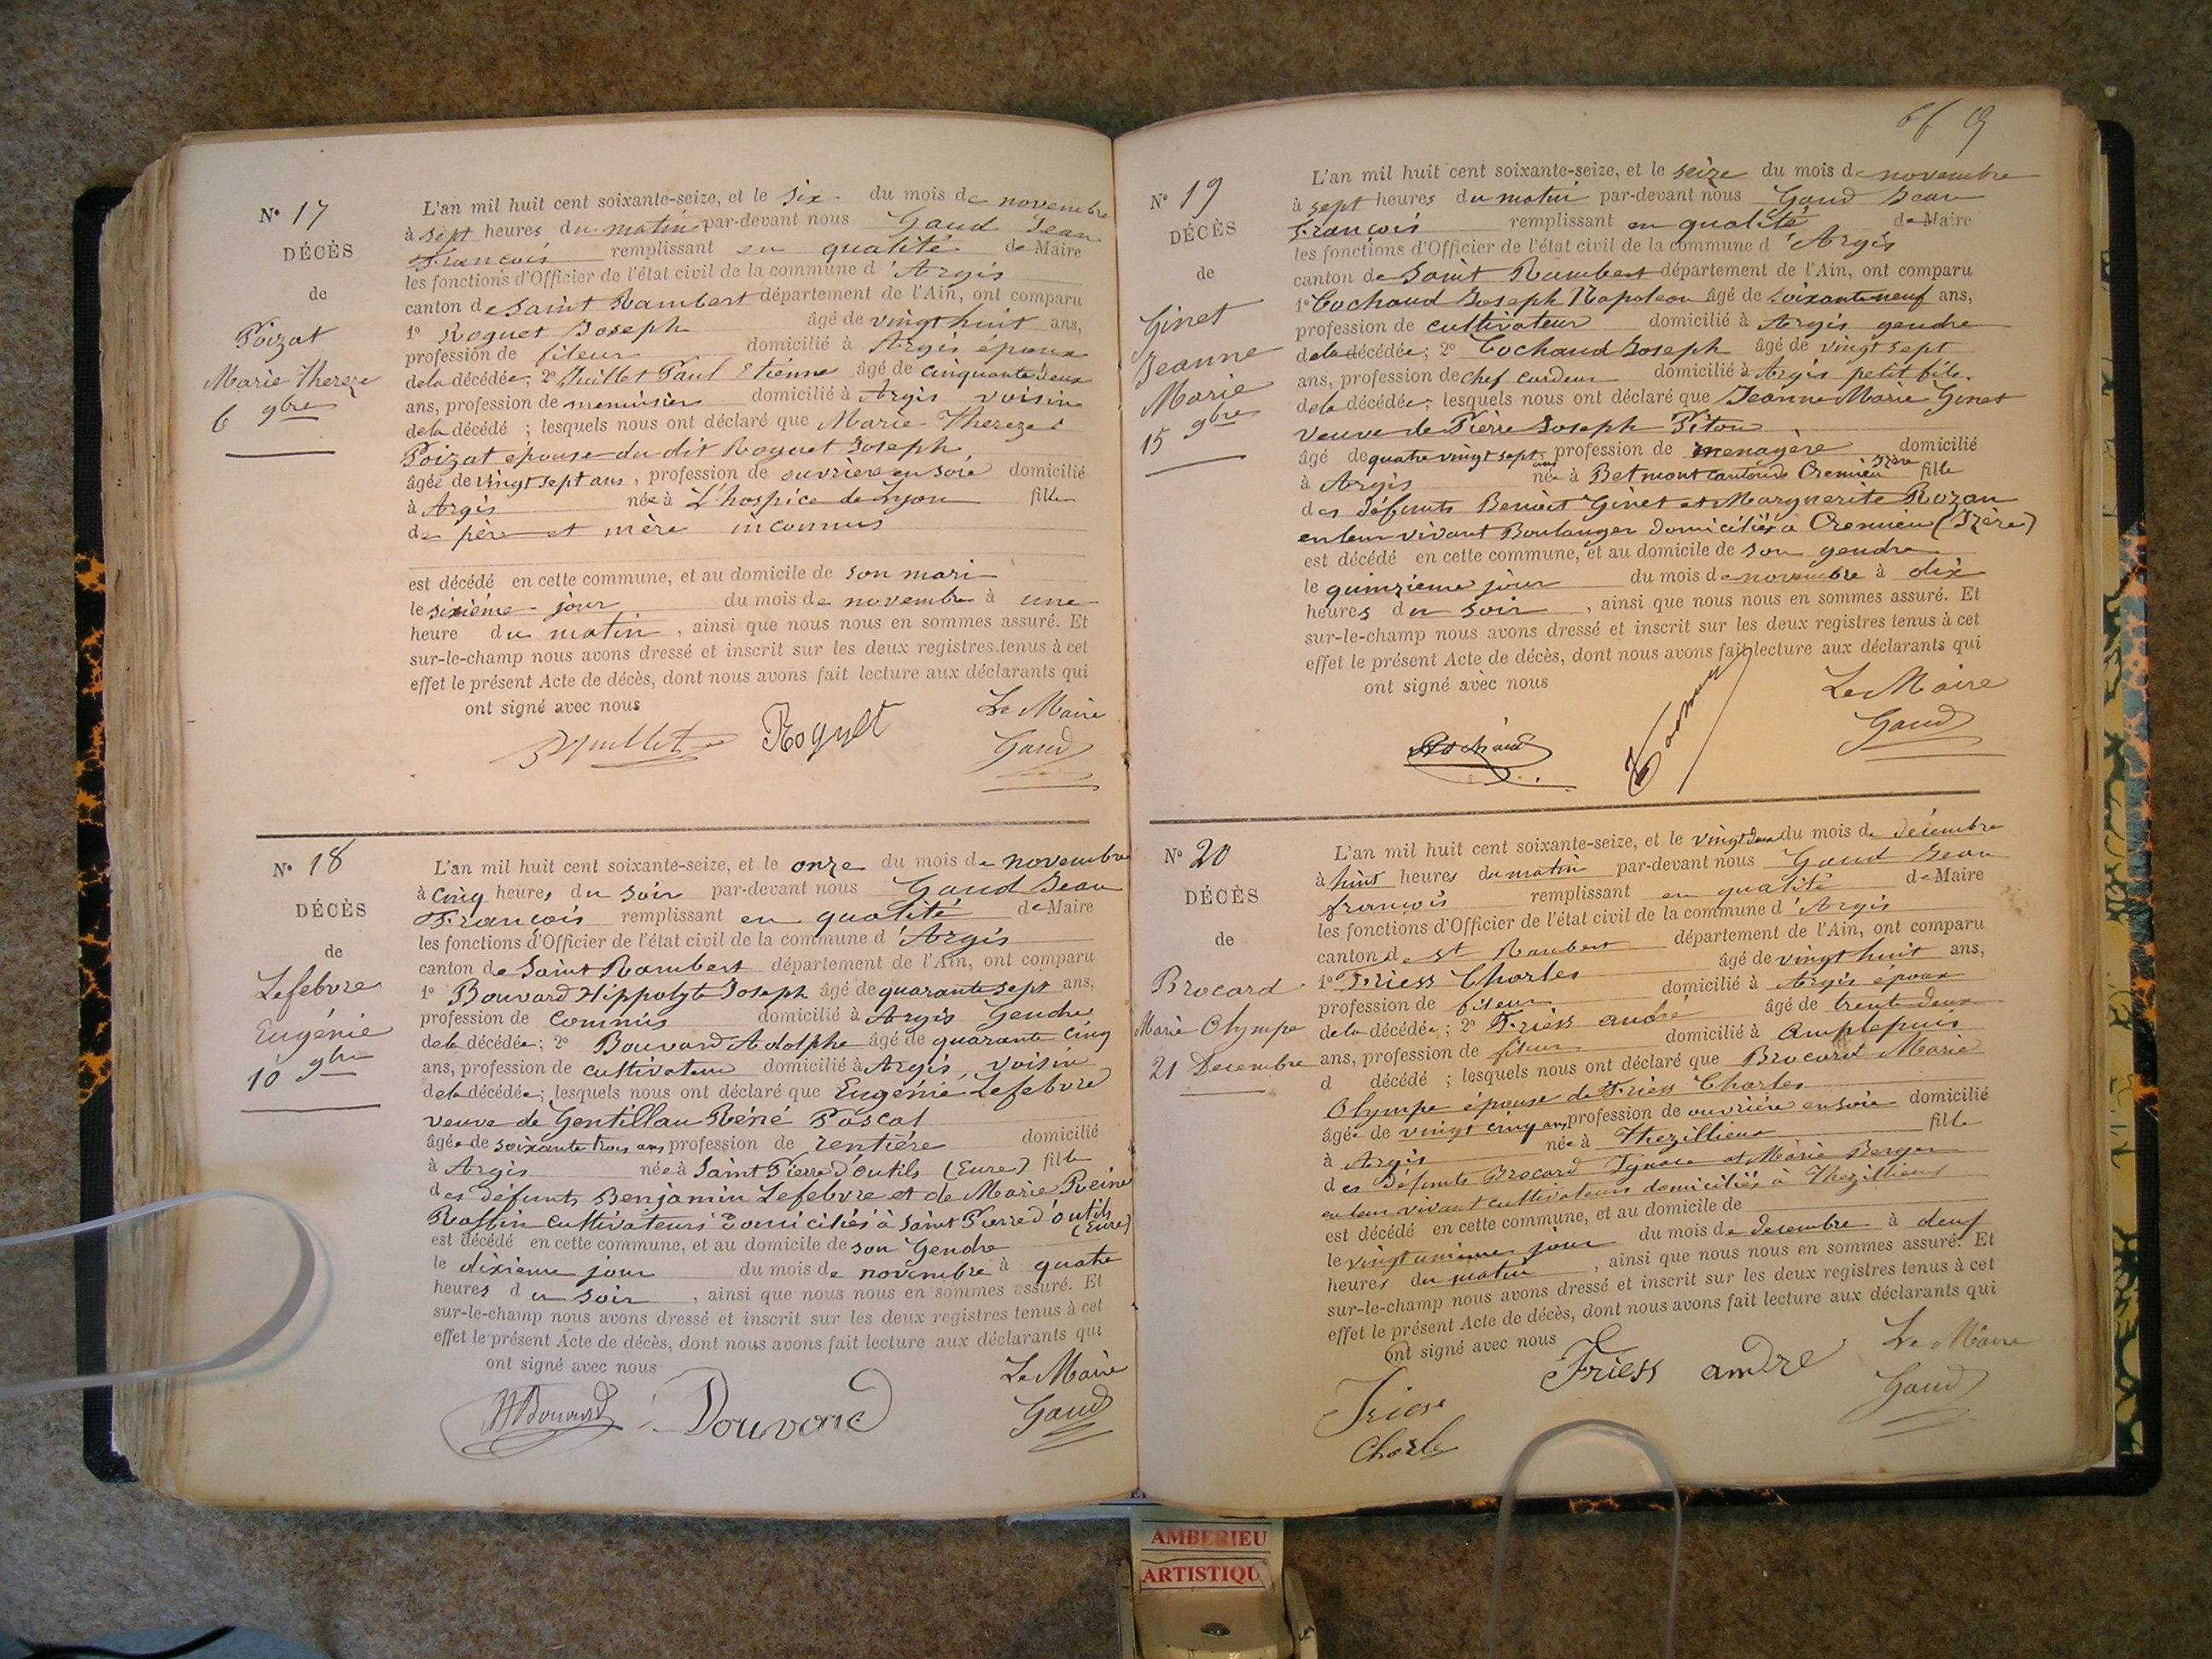 N° 17
DÉCÈS
de
Poizat
Marie Thereze
6 9bre
L'an mil huit cent soixante-seize, et le six du mois de novembre
à sept heures du matin par-devant nous Gaud Jean
François remplissant en qualité de Maire
les fonctions d'Officier de l'état civil de la commune d'Argis
canton de Saint Rambert département de l'Ain, ont comparu
1° Roguet Joseph âgé de vingt huit ans,
profession de fileur domicilié à Argis époux
de la décédée; 2° Juillet Paul Etienne âgé de cinquante deux
ans, profession de menuisier domicilié à Argis voisin
de la décédé ; lesquels nous ont déclaré que Marie Thereze
Poizat épouse du dit Roguet Joseph
âgée de vingt sept ans, profession de ouvrière en soie domicilié
à Argis née à L'hospice de Lyon fille
de père et mère inconnus
est décédé en cette commune, et au domicile de son mari
le sixième jour du mois de novembre à une
heure du matin, ainsi que nous nous en sommes assuré. Et
sur-le-champ nous avons dressé et inscrit sur les deux registres tenus à cet
effet le présent Acte de décès, dont nous avons fait lecture aux déclarants qui
ont signé avec nous
Le Maire
Juillet Roguet Gaud
N° 18
DÉCÈS
de
Lefebvre
Eugénie
10 9bre
L'an mil huit cent soixante-seize, et le onze du mois de novembre
à cinq heures du soir par-devant nous Gaud Jean
François remplissant en qualité de Maire
les fonctions d'Officier de l'état civil de la commune d'Argis
canton de Saint Rambert département de l'Ain, ont comparu
1° Bouvard Hippolyte Joseph âgé de quarante sept ans,
profession de commis domicilié à Argis Gendre
de la décédée; 2° Bouvard Adolphe âgé de quarante cinq
ans, profession de cultivateur domicilié à Argis, voisin
de la décédée; lesquels nous ont déclaré que Eugénie Lefebvre
veuve de Gentillau Réné Pascal
âgée de soixante trois ans profession de rentière domicilié
à Argis née à Saint Pierre d'outils (Eure) fille
des défunts Benjamin Lefebvre et de Marie Reine
cultivateurs domiciliés à Saint Pierre d'outils
(Eure)
est décédé en cette commune, et au domicile de son Gendre
le dixième jour du mois de novembre à quatre
heures du soir, ainsi que nous nous en sommes assuré. Et
sur-le-champ nous avons dressé et inscrit sur les deux registres tenus à cet
effet le présent Acte de décès, dont nous avons fait lecture aux déclarants qui
ont signé avec nous
Le Maire
HBouvard Bouvard Gaud
N° 19
DÉCÈS
de
Ginet
Jeanne
Marie
15 9bre
L'an mil huit cent soixante-seize, et le seize du mois de novembre
à sept heures du matin par-devant nous Gaud Jean
François remplissant en qualité de Maire
les fonctions d'Officier de l'état civil de la commune d'Argis
canton de Saint Rambert département de l'Ain, ont comparu
1° Cochaud Joseph Napoleon âgé de soixante neuf ans,
profession de cultivateur domicilié à Argis gendre
de la décédée; 2° Cochaud Joseph âgé de vingt sept
ans, profession de chef cardeur domicilié à Argis petit fils
de la décédée; lesquels nous ont déclaré que Jeanne Marie Ginet
veuve de Pierre Joseph Piton
âgé de quatre vingt sept ans profession de menagère domicilié
à Argis née à Betmont canton de Cremieu Isère fille
des défunts Benoit Ginet et Marguerite Rozan
en leur vivant Boulanger domiciliés à Cremieu (Izère)
est décédé en cette commune, et au domicile de son gendre
le quinzieme jour du mois de novembre à dix
heures du soir, ainsi que nous nous en sommes assuré. Et
sur-le-champ nous avons dressé et inscrit sur les deux registres tenus à cet
effet le présent Acte de décès, dont nous avons fait lecture aux déclarants qui
ont signé avec nous
Le Maire
Cochaud Gaud
N° 20
DÉCÈS
de
Brocard
Marie Olympe
21 Decembre
L'an mil huit cent soixante-seize, et le vingt deux du mois de décembre
à huit heures du matin par-devant nous Gaud Jean
françois remplissant en qualité de Maire
les fonctions d'Officier de l'état civil de la commune d'Argis
canton de st Rambert département de l'Ain, ont comparu
1° Friess Charles âgé de vingt huit ans,
profession de fileur domicilié à Argis époux
de la décédée; 2° Friess andré âgé de trente deux
ans, profession de fileur domicilié à Amplepuis
d décédé ; lesquels nous ont déclaré que Brocard Marie
Olympe épouse de Friess Charles
âgée de vingt cinq ans, profession de ouvrière en soie domicilié
à Argis née à Thezillieux fille
des défunts Brocard Ignace et Marie Berger
en leur vivant cultivateurs domiciliés à Thezillieux
est décédé en cette commune, et au domicile de
le vingt unieme jour du mois de decembre à neuf
heures du matin, ainsi que nous nous en sommes assuré. Et
sur-le-champ nous avons dressé et inscrit sur les deux registres tenus à cet
effet le présent Acte de décès, dont nous avons fait lecture aux déclarants qui
ont signé avec nous
Le Maire
Friess andré Gaud
Friess
Charles
AMBERIEU
ARTISTIQU